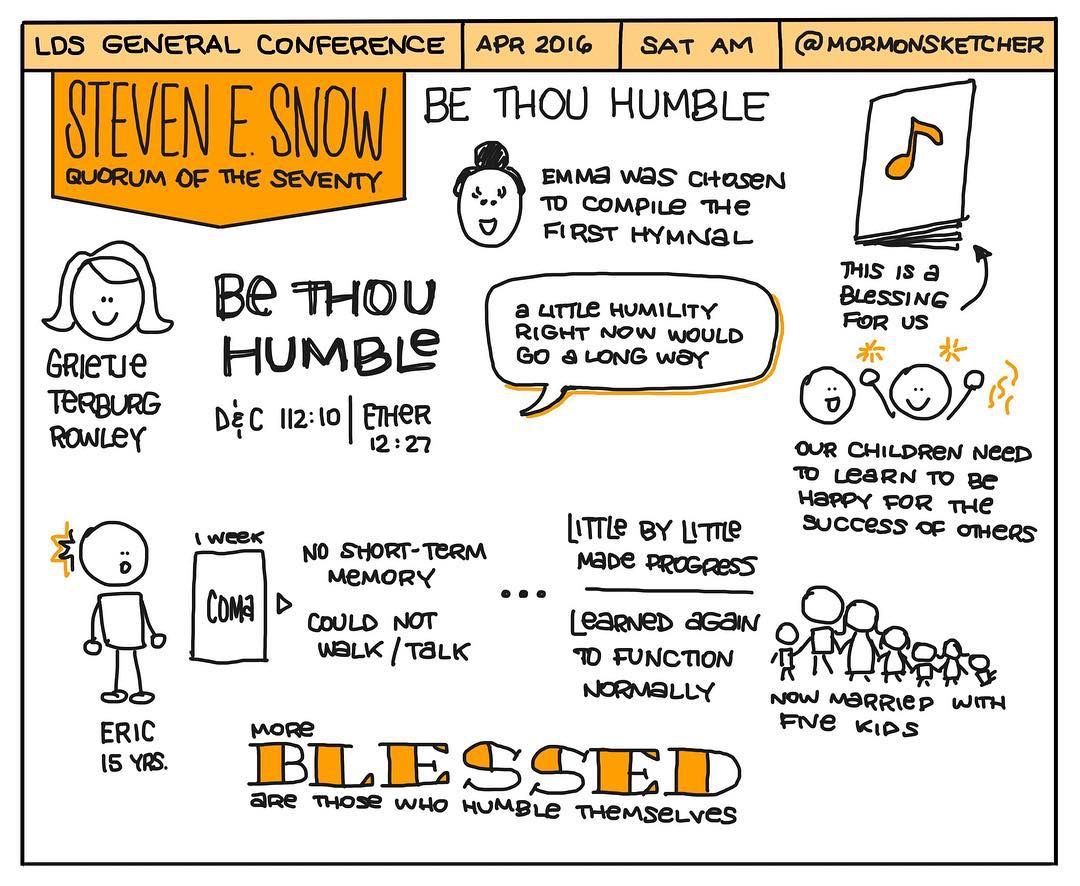 LDS GENERAL CONFERENCE
APR 2016
SAT AM
@MORMONSKETCHER
STEVEN E. SNOW
QUORUM OF THE SEVENTY
BE THOU HUMBLE
EMMA WAS CHOSEN
TO COMPILE THE
FIRST HYMNAL
THIS IS A
BLESSING
FOR US
GRIETJE
TERBURG
ROWLEY
BE THOU
HUMBLE
D&C 112:10 | ETHER
12:27
A LITTLE HUMILITY
RIGHT NOW WOULD
GO A LONG WAY
OUR CHILDREN NEED
TO LEARN TO BE
HAPPY FOR THE
SUCCESS OF OTHERS
ERIC
15 YRS.
1 WEEK
COMA
NO SHORT-TERM
MEMORY
COULD NOT
WALK / TALK
...
LITTLE BY LITTLE
MADE PROGRESS
LEARNED AGAIN
TO FUNCTION
NORMALLY
NOW MARRIED WITH
FIVE KIDS
MORE
BLESSED
ARE THOSE WHO HUMBLE THEMSELVES